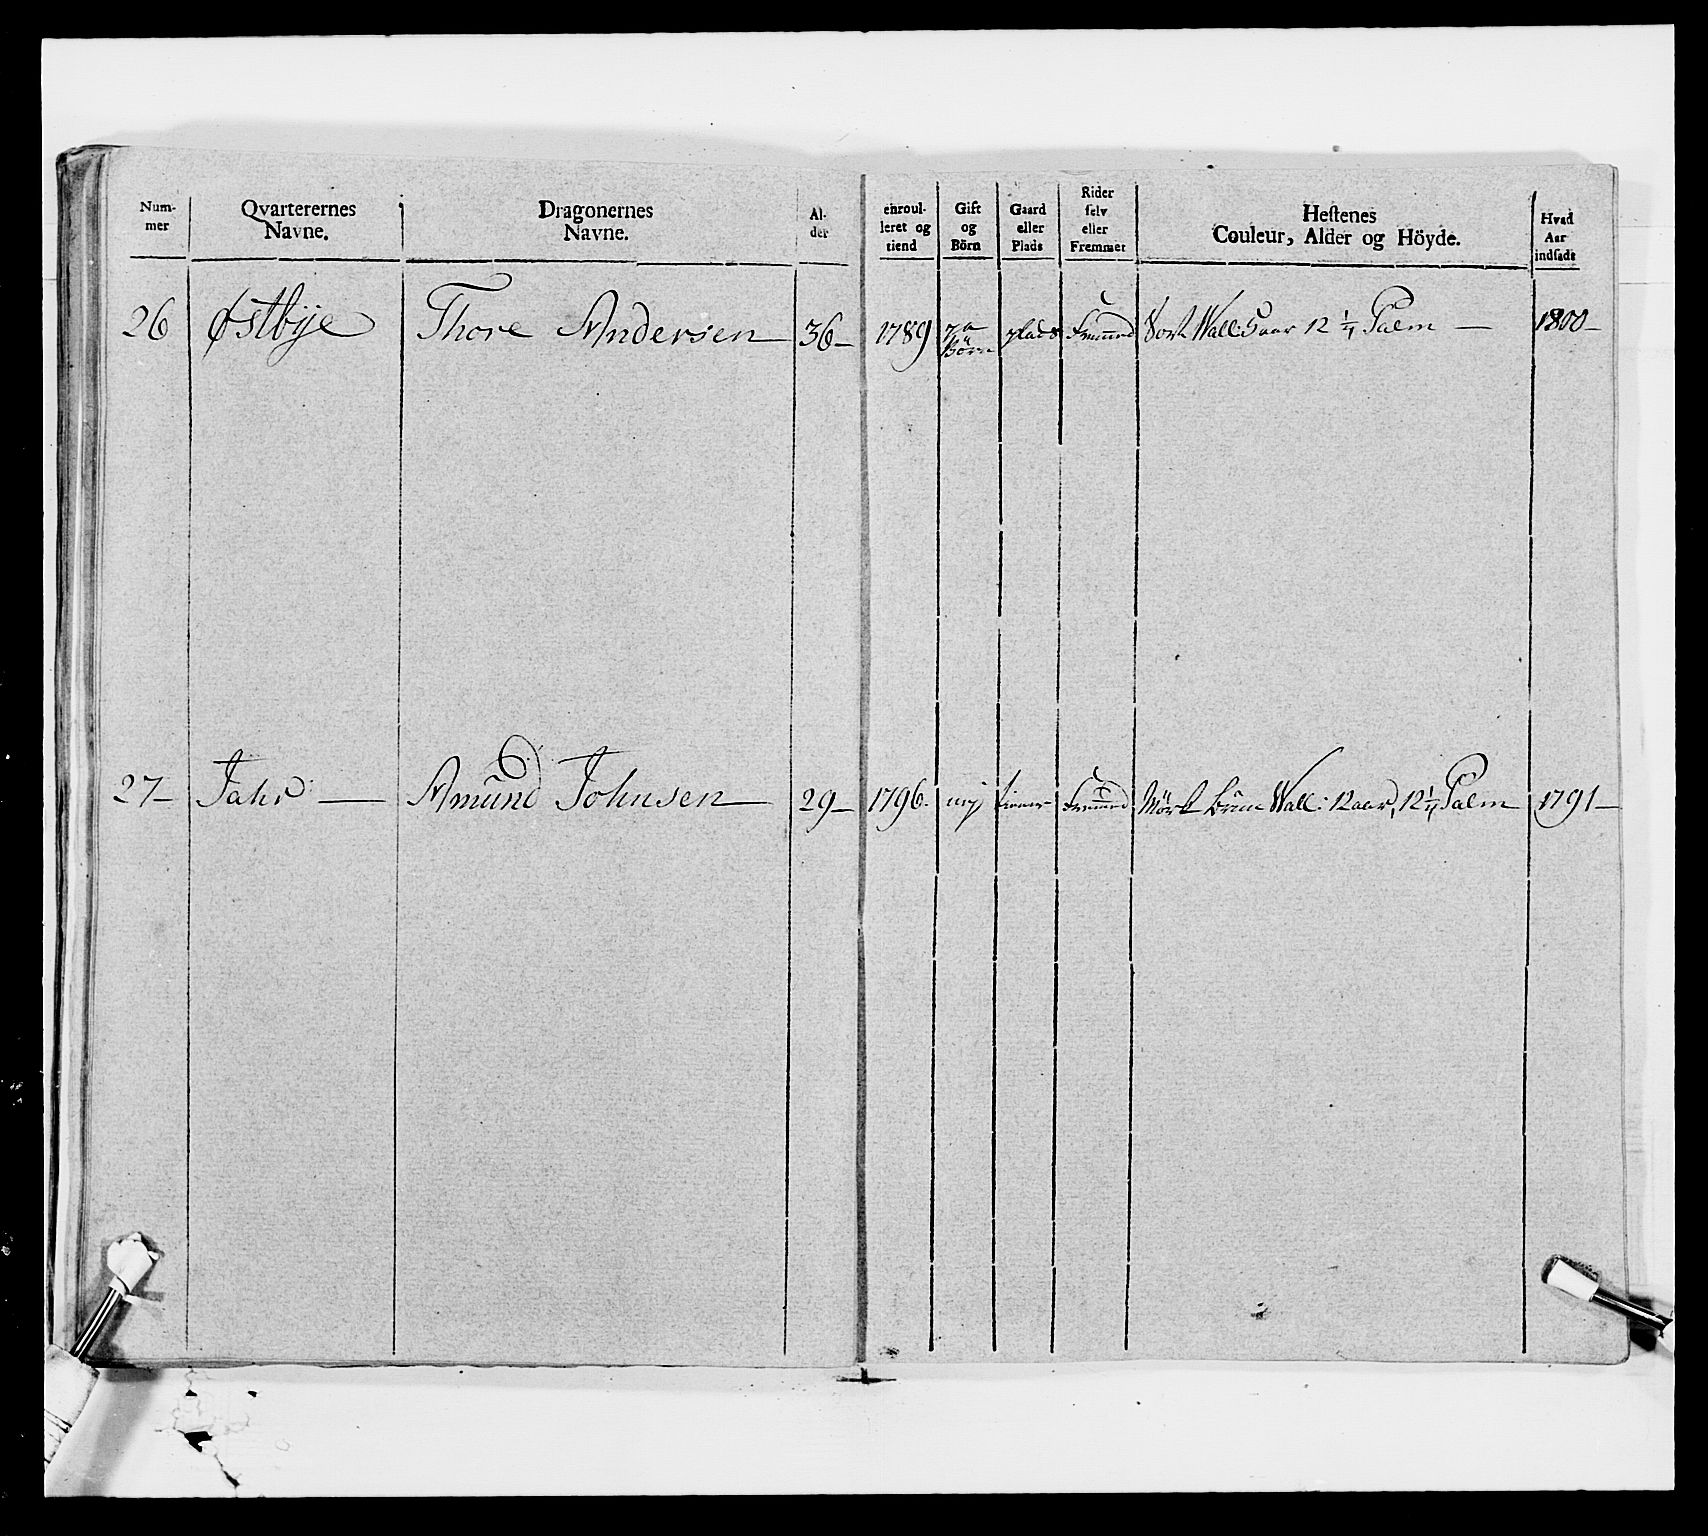 Num-
mer
Qvarterernes
Navne.
Dragonernes
Navne.
Al-
der
enroul-
leret og
tiend
Gift
og
Börn
Gaard
eller
Plads
Rider
selv
eller
Fremmet
Hestenes
Couleur, Alder og Höyde.
Hvad
Aar
indsadt
26 Østbye Thore Andersen 36 1789 ja plads Fremmed Sort Wall: 5 aar 12 1/4 Palm 1800
Börn
27 Jahr Amund Johnsen 29 1796 nej Fremmed Mörk brun Wall: 12 aar, 12 1/4 Palm 1791